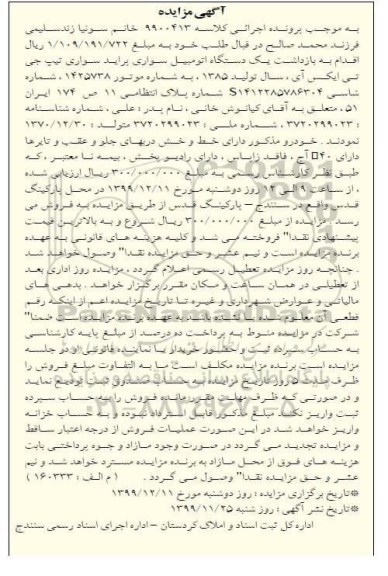 آگهی مزایده
به موجب پرونده اجرائی کلاسه ۹۹۰۰۴۱۳ خانم سونیا زندسلیمی
فرزند محمد صالح در قبال طلب خود به مبلغ ۱/۱۰۹/۱۹۱/۷۲۲ ریال
اقدام به بازداشت یک دستگاه اتومبیل سواری پراید سواری تیپ جی
تی ایکس آی ، سال تولید ۱۳۸۵ ، به شماره موتور ۱۴۲۵۷۳۸ ، شماره
شاسی S۱۴۱۲۲۸۵۷۸۶۳۰۴ شماره پلاک انتظامی ۱۱ ص ۱۷۴ ایران
۵۱ ، متعلق به آقای کیانوش خانی ، نام پدر : علی ، شماره شناسنامه
: ۳۷۲۰۲۹۹۰۲۳ ، شماره ملی : ۳۷۲۰۲۹۹۰۲۳ متولد : ۱۳۷۰/۱۲/۳۰
نمودند . خودرو مذکور دارای خط و خش دربهای جلو و عقب و تایرها
دارای ۴۰٪ آج ، فاقد زاپاس ، دارای رادیو پخش ، بیمه نا معتبر ، که
طبق نظر کارشناس رسمی به مبلغ ۳۰۰/۰۰۰/۰۰۰ ریال ارزیابی شده
، از ساعت ۹ الی ۱۲ روز دوشنبه مورخ ۱۳۹۹/۱۲/۱۱ در محل پارکینگ
قدس واقع در سنندج – پارکینگ قدس از طریق مزایده به فروش می
رسد . مزایده از مبلغ ۳۰۰/۰۰۰/۰۰۰ ریال شروع و به بالاترین قیمت
پیشنهادی نقدا" فروخته می شد و کلیه هزینه های قانونی به عهده
برنده مزایده است و نیم عشر و حق مزایده نقدا" وصول خواهد شد
. چنانچه روز مزایده تعطیل رسمی اعلام گردد ، مزایده روز اداری بعد
از تعطیلی در همان ساعت و مکان مقرر برگزار خواهد . بدهی های
مالیاتی و عوارض شهرداری و غیره تا تاریخ مزایده اعم از اینکه رقم
قطعی آن معلوم شده یا نشده باشد به عهده برنده مزایده است ضمنا"
شرکت در مزایده منوط به پرداخت ده درصد از مبلغ پایه کارشناسی
به حساب سپرده ثبت و حضور خریدار یا نماینده قانونی او در جلسه
مزایده است برنده مزایده مکلف است ما به التفاوت مبلغ فروش را
ظرف مدت از تاریخ مزایده به حساب صندوق ثبت تودیع نماید
و در صورتی که ظرف مهلت مقرر مانده فروش را به حساب سپرده
ثبت واریز نکند مبلغ مذکور قابل استرداد نبوده و به حساب خزانه
واریز خواهد شد در این صورت عملیات فروش از درجه اعتبار ساقط
و مزایده تجدید می گردد در صورت وجود مازاد و جوه پرداختی بابت
هزینه های فوق از محل مازاد به برنده مزایده مسترد خواهد شد و نیم
عشر و حق مزایده نقدا" وصول می گردد . ( م الف : ۱۶۰۳۳۳ )
*تاریخ برگزاری مزایده : روز دوشنبه مورخ ۱۳۹۹/۱۲/۱۱
*تاریخ نشر آگهی : روز شنبه ۱۳۹۹/۱۱/۲۵
اداره کل ثبت اسناد و املاک کردستان – اداره اجرای اسناد رسمی سنندج